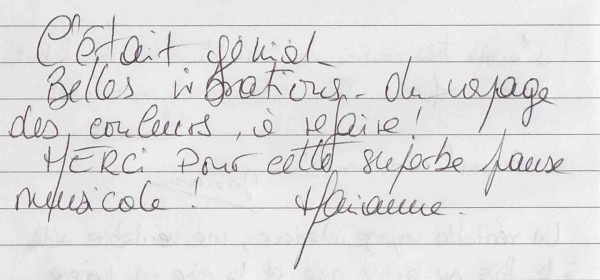 C'était génial
Belles vibrations. du voyage
des couleurs, à refaire!
MERCI Pour cette superbe pause
musicale! Marianne.